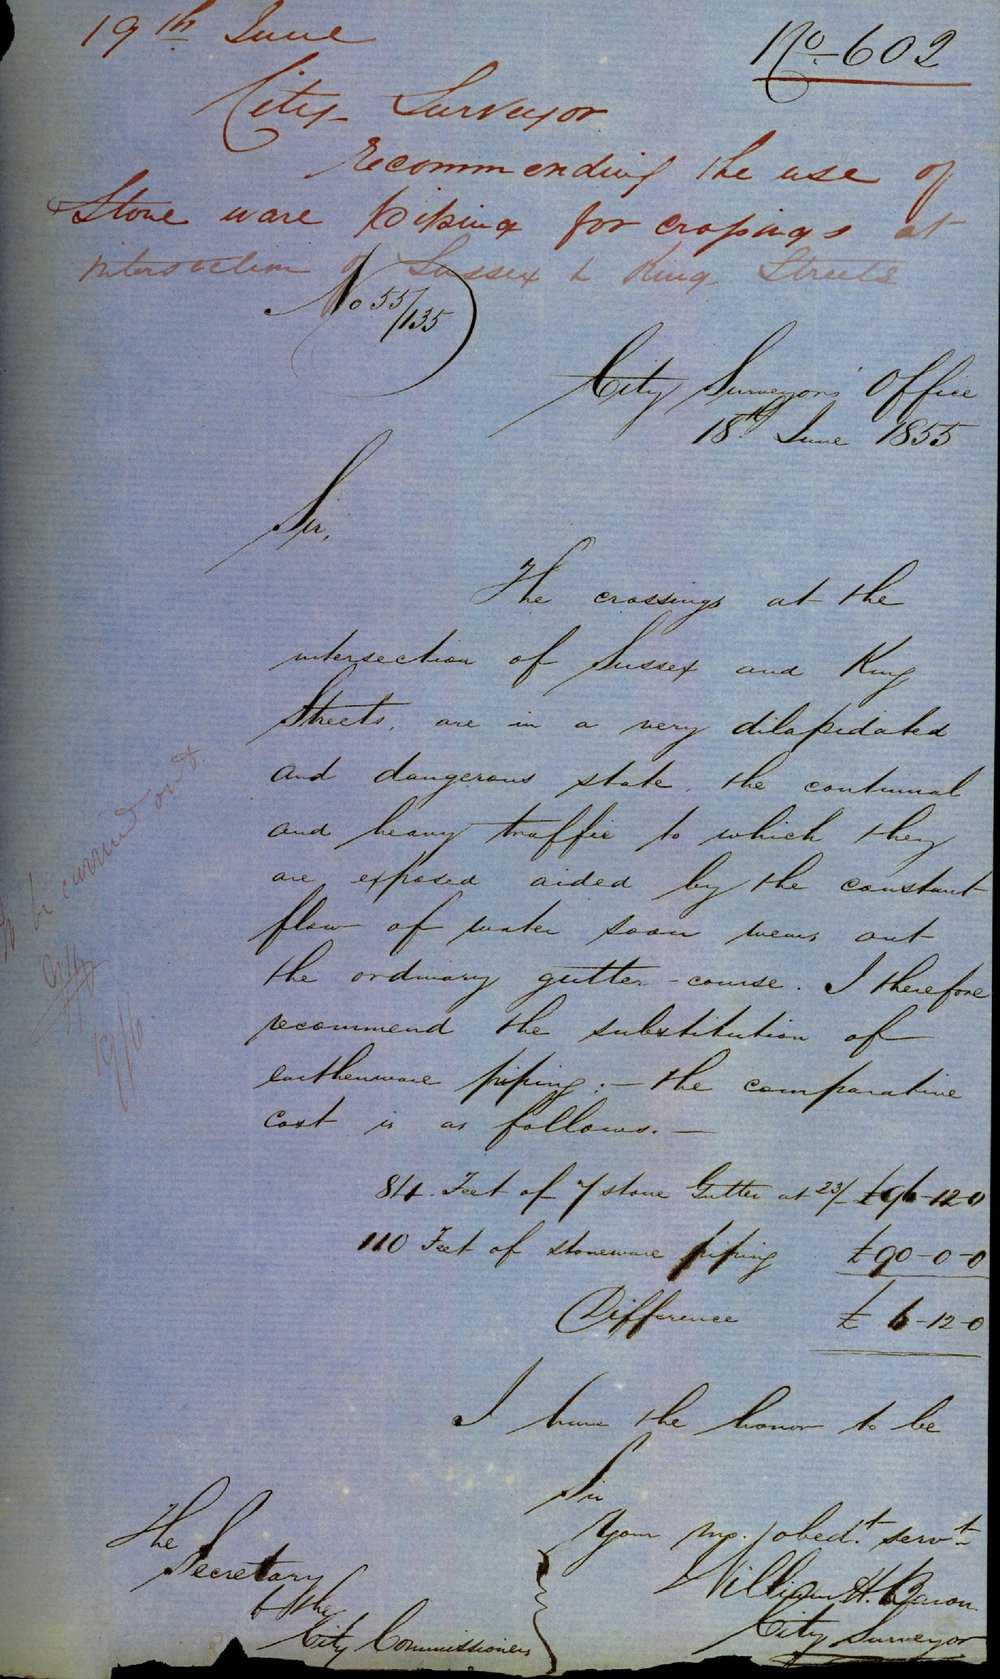 19th June
No 602
City Surveyor
recommending the use of
Stone ware piping for crossings at
intersection of Sussex & King Streets
No 55/135
City Surveyors' Office
18th June 1855
Sir,
The crossings at the
intersection of Sussex and King
Streets, are in a very dilapidated
and dangerous state. the continual
and heavy traffic to which they
are exposed aided by the constant
flow of water soon wears out
the ordinary gutter-course. I therefore
recommend the substitution of
earthenware piping:— the comparative
cost is as follows.—
84. Feet of 7/ stone Gutter at 23/ £96-12-0
110 Feet of stoneware piping £90-0-0
Difference £6-12-0
I have the honor to be
Sir
Your mo. obedt. servt
William H. Baron
City Surveyor
The
Secretary
to the
City Commissioners
To be carried out.
19/6